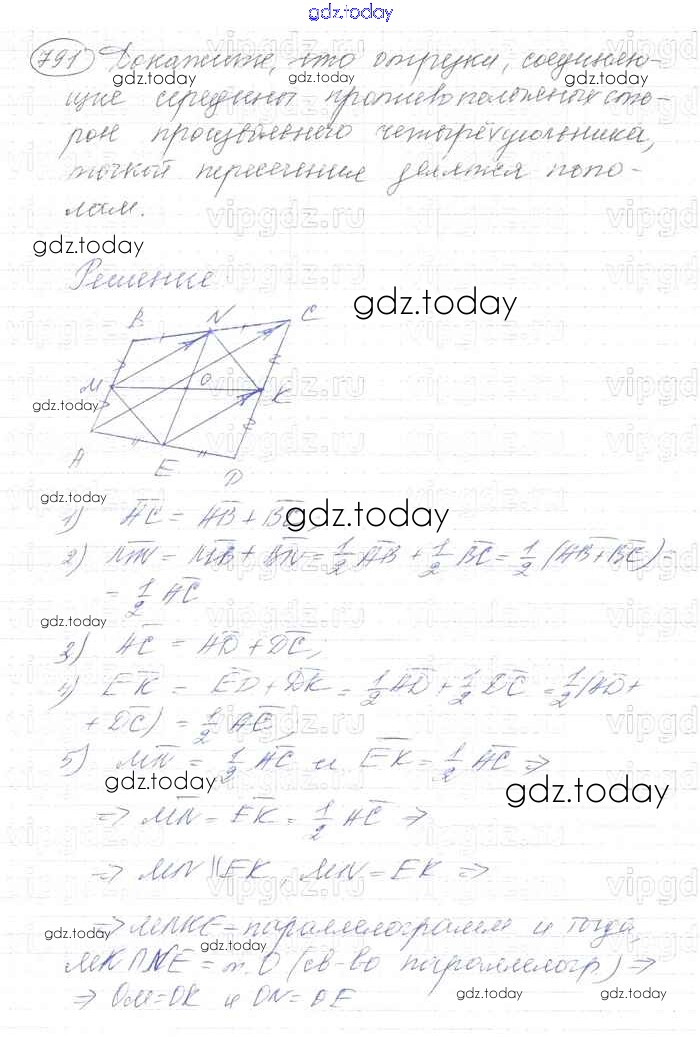 gdz.today
791 Докажите, что отрезки, соединяю-
щие середины противоположных сто-
рон произвольного четырёхугольника,
точкой пересечения делятся попо-
лам.
gdz.today
Решение
B N C
gdz.today
M O K
gdz.today
A E D
gdz.today
1) AC = AB + BC
gdz.today
2) MN = MB + BN = 1/2 AB + 1/2 BC = 1/2 (AB + BC) =
= 1/2 AC
gdz.today
3) AC = AD + DC;
4) EK = ED + DK = 1/2 AD + 1/2 DC = 1/2 (AD +
+ DC) = 1/2 AC;
5) MN = 1/2 AC и EK = 1/2 AC ⇒
gdz.today
gdz.today
⇒ MN = EK = 1/2 AC ⇒
⇒ MN || EK, MN = EK ⇒
⇒ MNKE – параллелограмм и тогда,
gdz.today gdz.today
MK ∩ NE = т. O (св-во параллелогр.) ⇒
⇒ OM = OK и ON = OE
gdz.today gdz.today